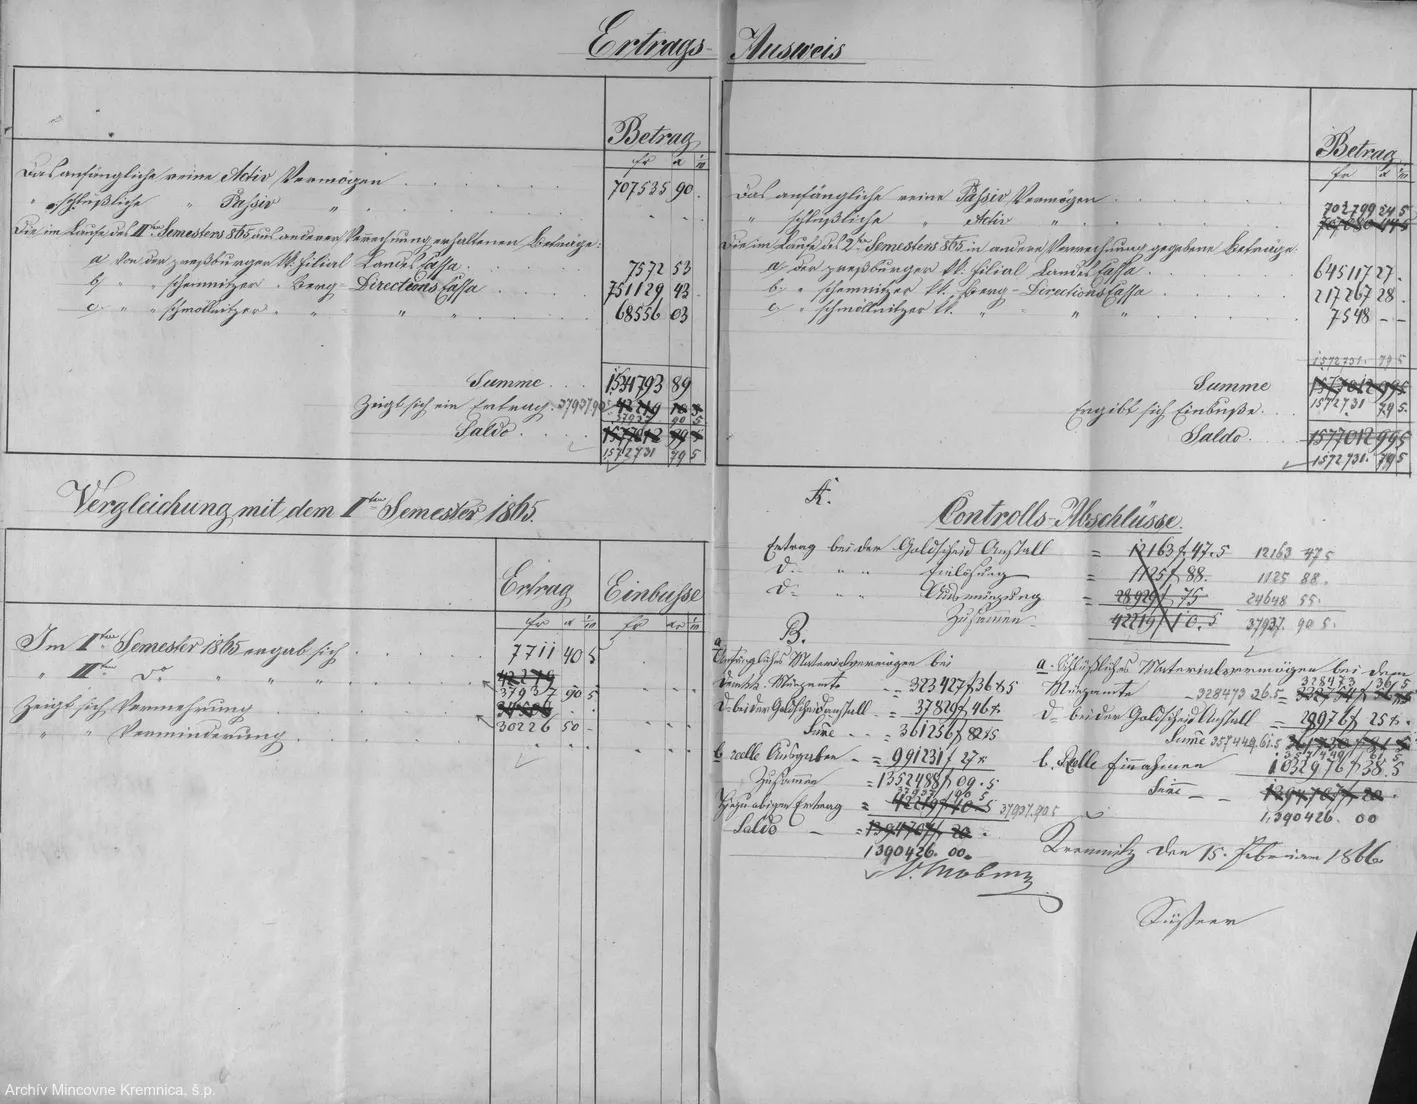 Ertrags-Ausweis
Betrag
fr x m
Das anfängliche reine Activ Vermögen 707535 90
" schlußliche " Passiv "
Die im Laufe des IIten Semesters 865 aus anderer Verrechnung erhaltenen Beträge:
a von der preßburger kk. Filial Landes Cassa 7572 53
b " " schemnitzer " Berg-Directions Cassa 751129 43
c " " schmöllnitzer " " " " 68556 03
Summe 1534793 89
Zeigt sich ein Ertrag 37937.90 5 42219 10 5
37937 90 5
Saldo 1577012 99 5
1572731 79 5
Betrag
fr x m
Das anfängliche reine Passiv Vermögen
" schlußliche " Activ " 702799 24 5
Die im Laufe des 2ten Semesters 865 in andere Verrechnung gegebene Beträge
a der preßburger kk. Filial Landes Cassa 645117 27
b " schemnitzer kk. Berg-Directions Cassa 217267 28
c " schmöllnitzer kk. " " " 7548 - -
1572731. 79 5
Summe 1577012 99 5
1572731 79 5
Ergibt sich Einbuße
Saldo 1577012 99 5
1572731. 79 5
Vergleichung mit dem Iten Semester 1865.
Ertrag Einbusse
fr x m fr xr m
Im Iten Semester 1865 ergab sich 7711 40 5
" IIten Do " " 42219
37937 90 5
Zeigt sich Vermehrung 34508
30226 50 -
" " Verminderung
A.
Controlls-Abschlüsse.
Ertrag bei der Goldscheid Anstall = 12163f 47.5 12163 47 5
do " " Einlösung = 1125f 88. 1125 88.
do " " Ausmünzung = 28929f 75 24648 55.
Zusamen 42219f 10.5 37937. 90 5.
B.
a
Anfängliches Materialvermögen bei
dem kk. Münzamte = 323427f 36x5
do bei der Goldscheidanstall = 37829f 46x
Sume = 361256f 82x5
b reelle Ausgaben = 991231f 27x
Zusamen = 1352488f 09.5
37937f 90 5
Hiezu obiger Ertrag = 42219f 10.5 37937.90 5
Saldo = 1394707f 20.
1390426. 00.
a. Schlußliches Materialvermögen bei dem
328473 f 36x5
Münzamte 328473 26.5 =
do bei der Goldscheid Anstall = 28976f 25x.
Sume 357449.61.5
b. Reelle Einnahmen 1032976f 38.5
Sume 1394707f 20
1,390426. 00
Kremnitz den 15. Februar 1866
Archív Mincovne Kremnica, š.p.